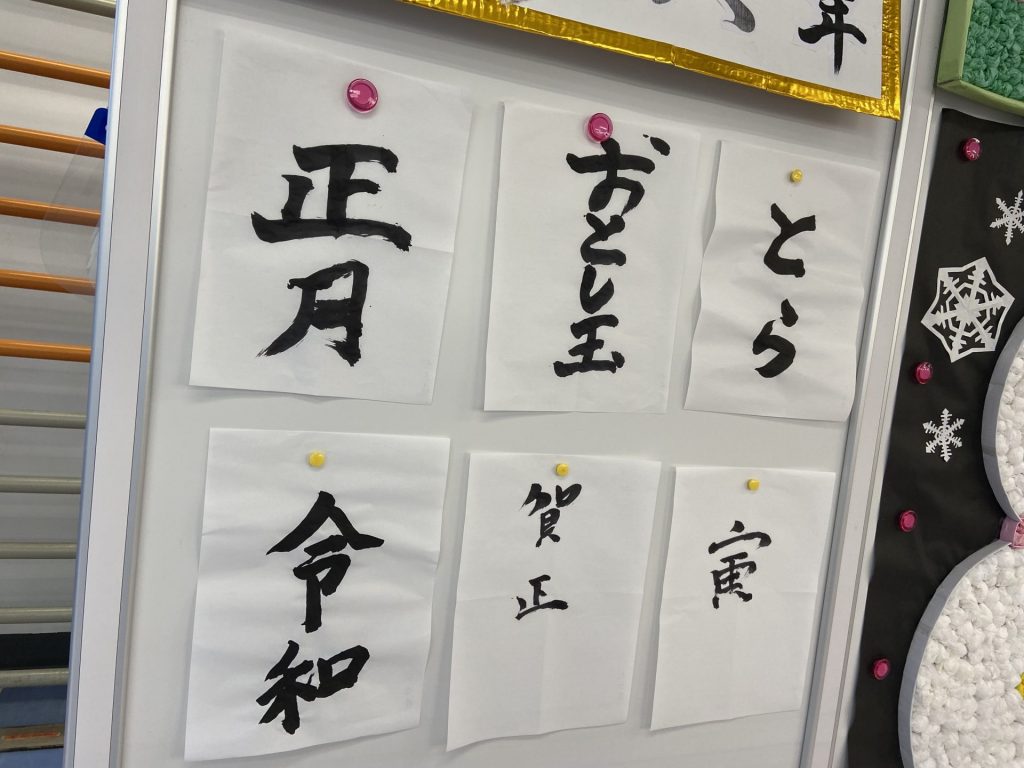 年
正月
おとし玉
とら
令和
賀正
寅